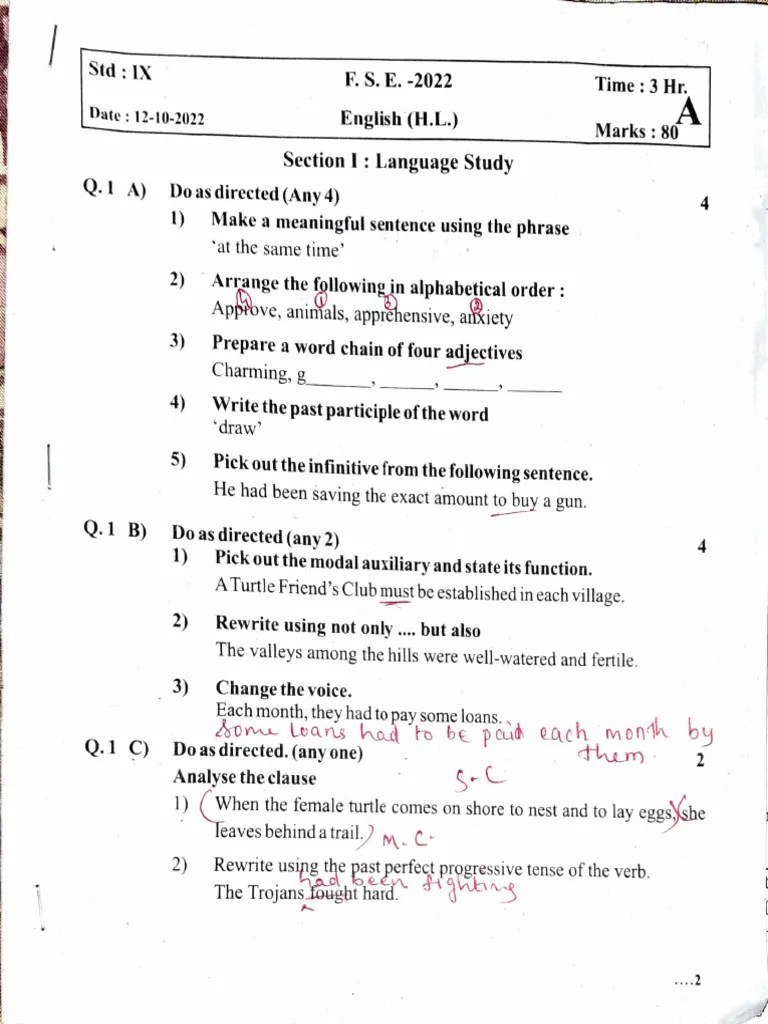 Std : IX F. S. E. -2022 Time : 3 Hr.
A
Date : 12-10-2022 English (H.L.) Marks : 80
Section I : Language Study
Q. 1 A) Do as directed (Any 4) 4
1) Make a meaningful sentence using the phrase
‘at the same time’
2) Arrange the following in alphabetical order :
4 1 3 2
Approve, animals, apprehensive, anxiety
3) Prepare a word chain of four adjectives
Charming, g_______, ______, ______, ______
4) Write the past participle of the word
‘draw’
5) Pick out the infinitive from the following sentence.
He had been saving the exact amount to buy a gun.
Q. 1 B) Do as directed (any 2) 4
1) Pick out the modal auxiliary and state its function.
A Turtle Friend’s Club must be established in each village.
2) Rewrite using not only .... but also
The valleys among the hills were well-watered and fertile.
3) Change the voice.
Each month, they had to pay some loans.
Some loans had to be paid each month by
them.
Q. 1 C) Do as directed. (any one) 2
Analyse the clause S-C
1) (When the female turtle comes on shore to nest and to lay eggs,)(she
leaves behind a trail.) M.C.
2) Rewrite using the past perfect progressive tense of the verb.
had been fighting
The Trojans fought hard.
....2